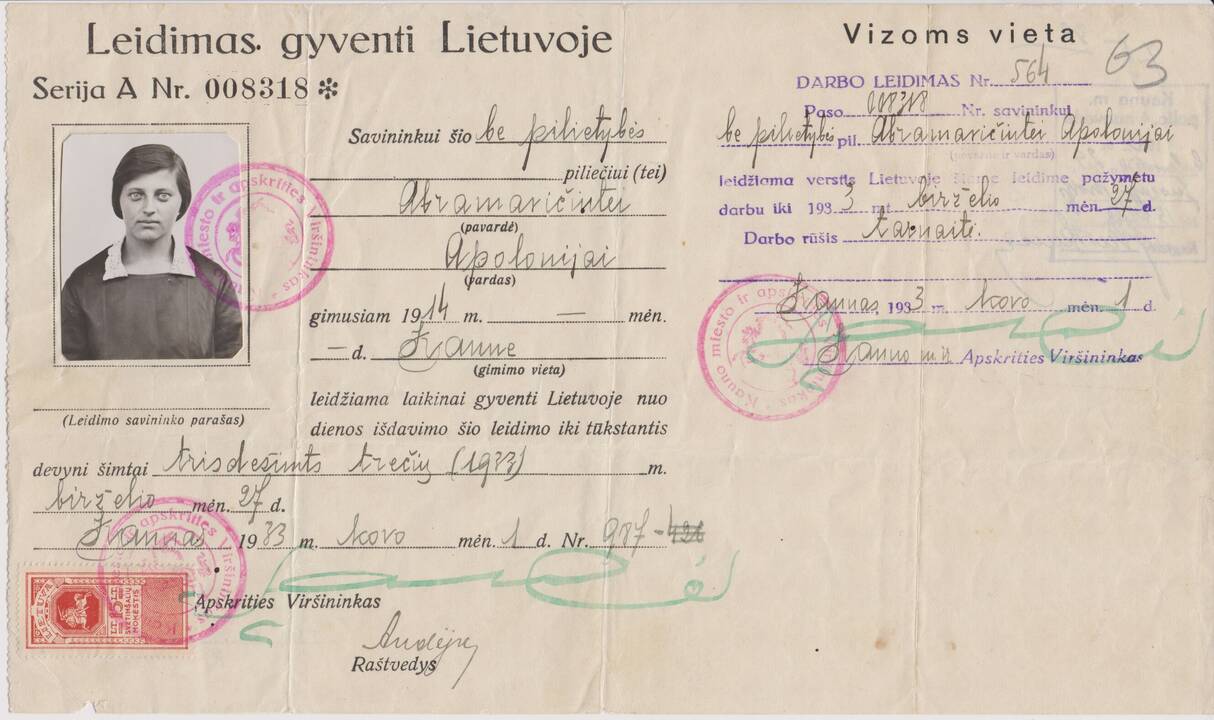 Leidimas gyventi Lietuvoje
Serija A Nr. 008318 ✻
Savininkui šio be pilietybės
piliečiui (tei)
Abramavičiutei
(pavardė)
Apolonijai
(vardas)
gimusiam 1914 m. — mėn.
— d. Kaune
(gimimo vieta)
leidžiama laikinai gyventi Lietuvoje nuo
dienos išdavimo šio leidimo iki tūkstantis
(Leidimo savininko parašas)
devyni šimtai trisdešimts trečių (1933) m.
birželio mėn. 27 d.
Kaunas 1933 m. kovo mėn. 1 d. Nr. 987
Apskrities Viršininkas
Raštvedys
LIETUVA
15 LT
SVETIMŠALIŲ
MOKESTIS
miesto ir apskrities Viršininkas
apskrities Viršininkas
Vizoms vieta
63
DARBO LEIDIMAS Nr. 564
Paso 008318 Nr. savininkui
be pilietybės pil. Abramavičiutei Apolonijai
(pavardė ir vardas)
leidžiama verstis Lietuvoje šiame leidime pažymėtu
darbu iki 1933 mt birželio mėn. 27 d.
Darbo rūšis tarnaitė.
Kaunas, 1933 m. kovo mėn. 1 d.
Kauno m. ir Apskrities Viršininkas
Kauno miesto ir apskrities Viršininkas